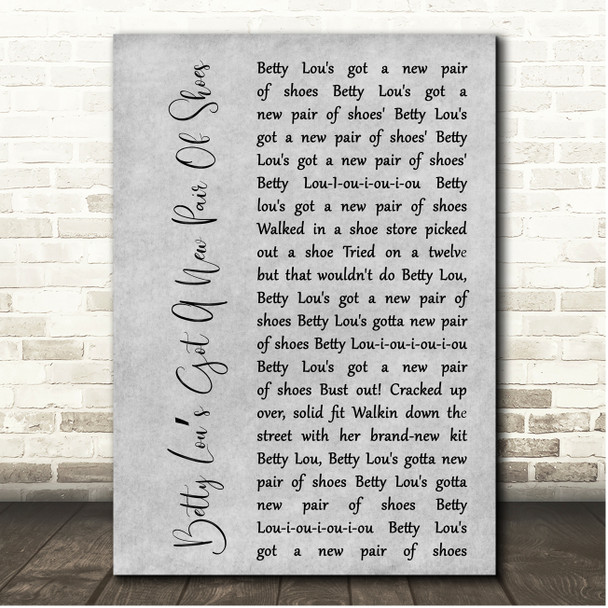 Betty Lou's Got A New Pair Of Shoes
Betty Lou's got a new pair
of shoes Betty Lou's got a
new pair of shoes' Betty Lou's
got a new pair of shoes' Betty
Lou's got a new pair of shoes'
Betty Lou-l-ou-i-ou-i-ou Betty
lou's got a new pair of shoes
Walked in a shoe store picked
out a shoe Tried on a twelve
but that wouldn't do Betty Lou,
Betty Lou's got a new pair of
shoes Betty Lou's gotta new pair
of shoes Betty Lou-i-ou-i-ou-i-ou
Betty Lou's got a new pair
of shoes Bust out! Cracked up
over, solid fit Walkin down the
street with her brand-new kit
Betty Lou, Betty Lou's gotta new
pair of shoes Betty Lou's gotta
new pair of shoes Betty
Lou-i-ou-i-ou-i-ou Betty Lou's
got a new pair of shoes